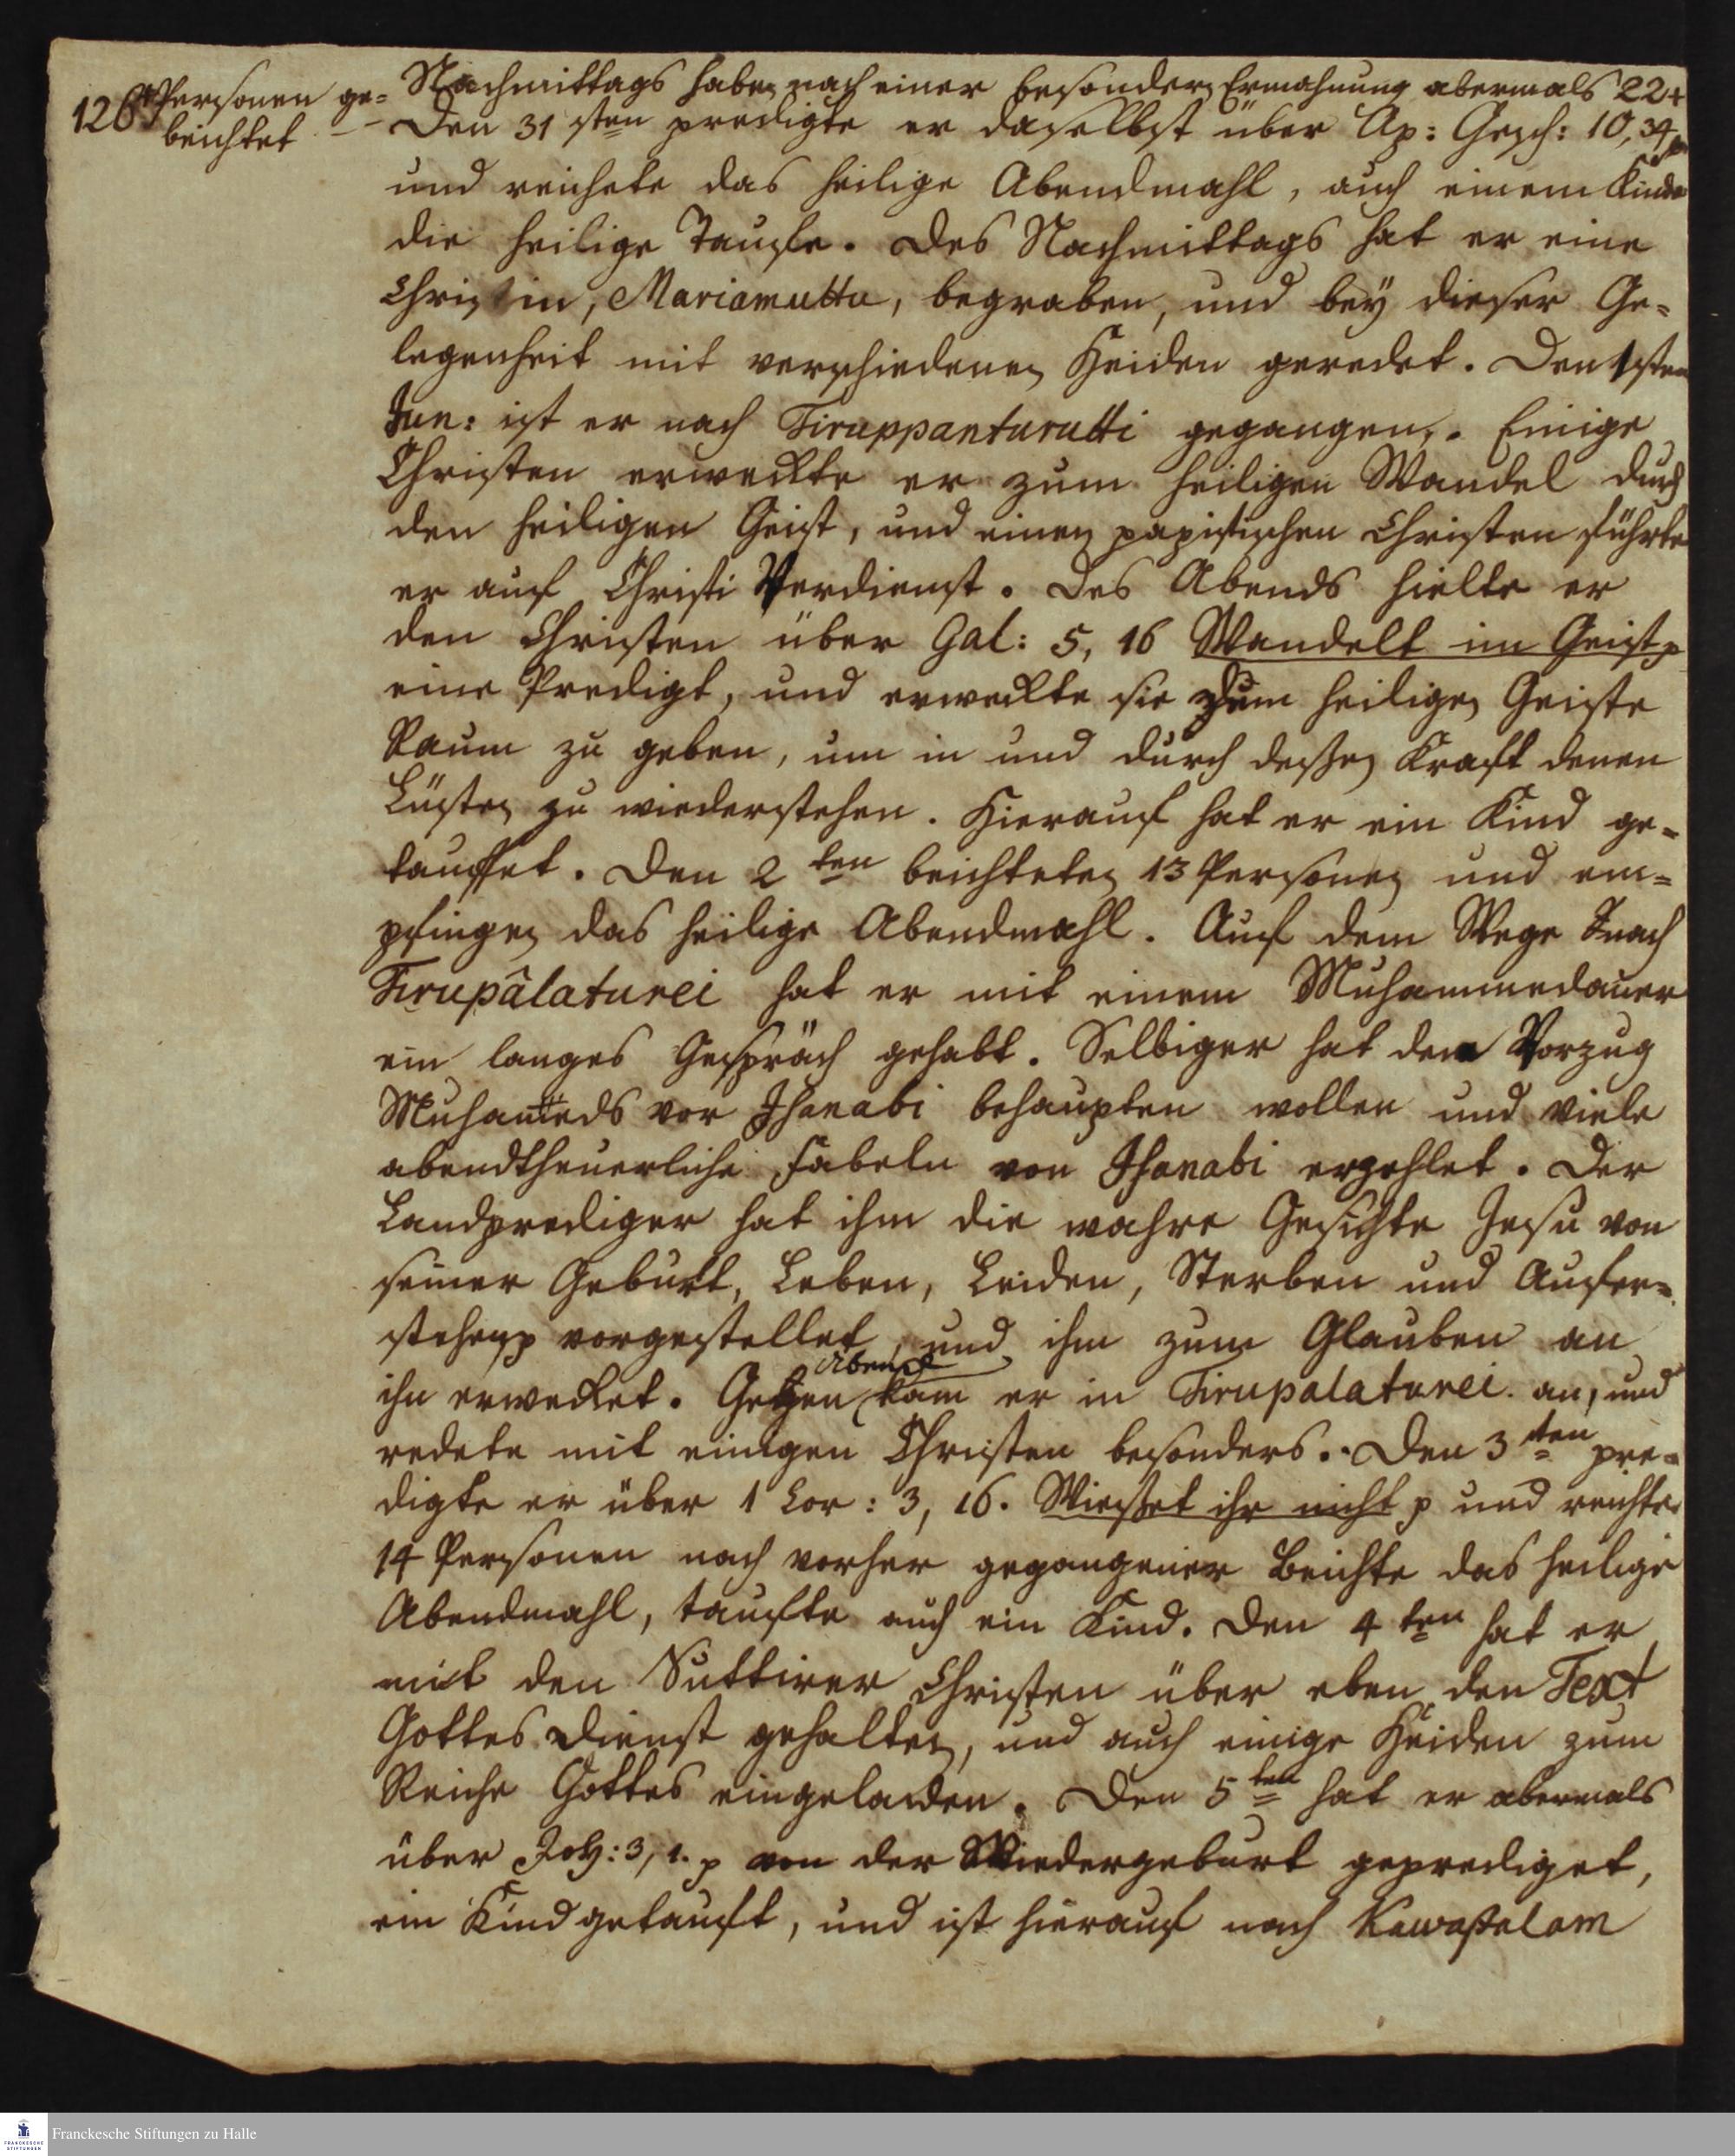 Nachmittags haben nach einer besondern Ermahnung abermals 22+
126 +Personen ge=
beichtet. — —
Den 31 sten predigte er daselbst über Ap: Gesch: 10, 34 p
und reichete das heilige Abendmahl, auch einem Kinde
die heilige Taufe. Des Nachmittags hat er eine
Christin, Mariamuttu, begraben, und bey dieser Ge=
legenheit mit verschiedenen Heiden geredet. Den 1sten
Jun: ist er nach Tiruppanturutti gegangen. Einige
Christen erweckte er zum heiligen Wandel durch
den heiligen Geist, und einen papistischen Christen führte
er auf Christi Verdienst. Des Abends hielte er
den Christen über Gal: 5, 16 Wandelt im Geist p
eine Predigt, und erweckte sie dem heiligen Geiste
Raum zu geben, um in und durch deßen Kraft denen
Lüsten zu wiederstehen. Hierauf hat er ein Kind ge=
tauffet. Den 2 ten beichteten 13 Personen und em=
pfingen das heilige Abendmahl. Auf dem Wege nach
Tirupâlaturei hat er mit einem Muhammedaner
ein langes Gespräch gehabt. Selbiger hat den Vorzug
Muham̅eds vor Ihanabi behaupten wollen und viele
abendtheuerliche Fabeln von Ihanabi erzehlet. Der
Landprediger hat ihm die wahre Geschichte Jesu von
seiner Geburt, Leben, Leiden, Sterben und Aufer=
stehen p vorgestellet, und ihm zum Glauben an
ihn erwecket. Gegen Abend kam er in Tirupalaturei an, und
redete mit einigen Christen besonders. Den 3 ten pre=
digte er über 1 Cor: 3, 16. Wießet ihr nicht p und reichte
14 Personen nach vorher gegangener Beichte das heilige
Abendmahl, taufte auch ein Kind. Den 4 ten hat er
mit den Suttirer Christen über eben den Text
Gottes Dienst gehalten, und auch einige Heiden zum
Reiche Gottes eingeladen. Den 5 ten hat er abermals
über Joh: 3, 1. p von der Wiedergeburt geprediget,
ein Kind getauft, und ist hierauf nach Kawastalam
Franckesche Stiftungen zu Halle